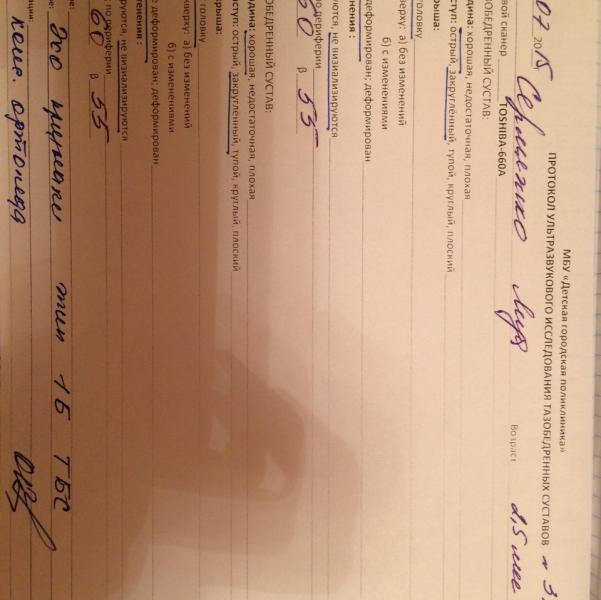 МБУ «Детская городская поликлиника»
ПРОТОКОЛ УЛЬТРАЗВУКОВОГО ИССЛЕДОВАНИЯ ТАЗОБЕДРЕННЫХ СУСТАВОВ № 3
07 2015 Возраст 2,5 мес
вой сканер TOSHIBA-660A
ОБЕДРЕННЫЙ СУСТАВ:
дина: хорошая, недостаточная, плохая
ступ: острый, закруглённый, тупой, круглый, плоский
рыша:
головку
верху: а) без изменений
б) с изменениями
деформирован; деформирован
нения:
руются, не визуализируются
по периферии
60 β 55
ОБЕДРЕННЫЙ СУСТАВ:
дина: хорошая, недостаточная, плохая
ступ: острый, закруглённый, тупой, круглый, плоский
рыша:
головку
кверху: а) без изменений
б) с изменениями
е деформирован; деформирован
тенения:
ируются, не визиализируются
по периферии
60 β 55
Эхо признаки тип 1Б ТБС
ции: конс. ортопеда